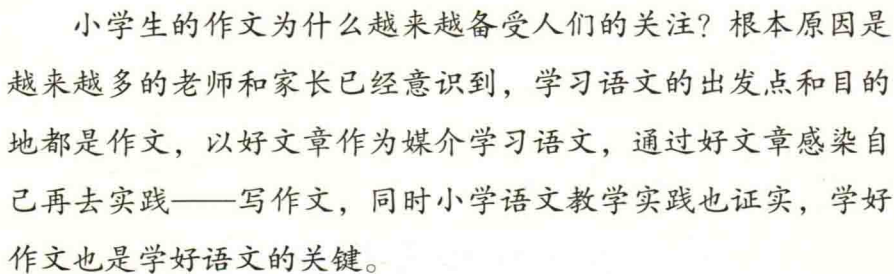 小学生的作文为什么越来越备受人们的关注？根本原因是
越来越多的老师和家长已经意识到，学习语文的出发点和目的
地都是作文，以好文章作为媒介学习语文，通过好文章感染自
己再去实践——写作文，同时小学语文教学实践也证实，学好
作文也是学好语文的关键。